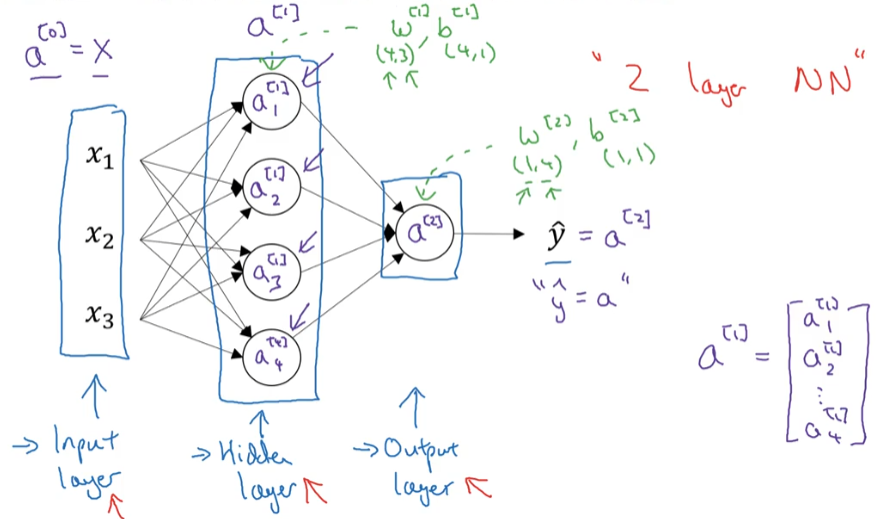 a^[0] = X
a^[1]
w^[1], b^[1]
(4,3) (4,1)
"2 layer NN"
x₁
x₂
x₃
a₁^[1]
a₂^[1]
a₃^[1]
a₄^[4]
w^[2], b^[2]
(1,4) (1,1)
a^[2]
ŷ = a^[2]
"ŷ = a"
a^[1] = [a₁^[1]
a₂^[1]
⋮
a₄^[1]]
→ Input
layer
→ Hidden
layer
→ Output
layer